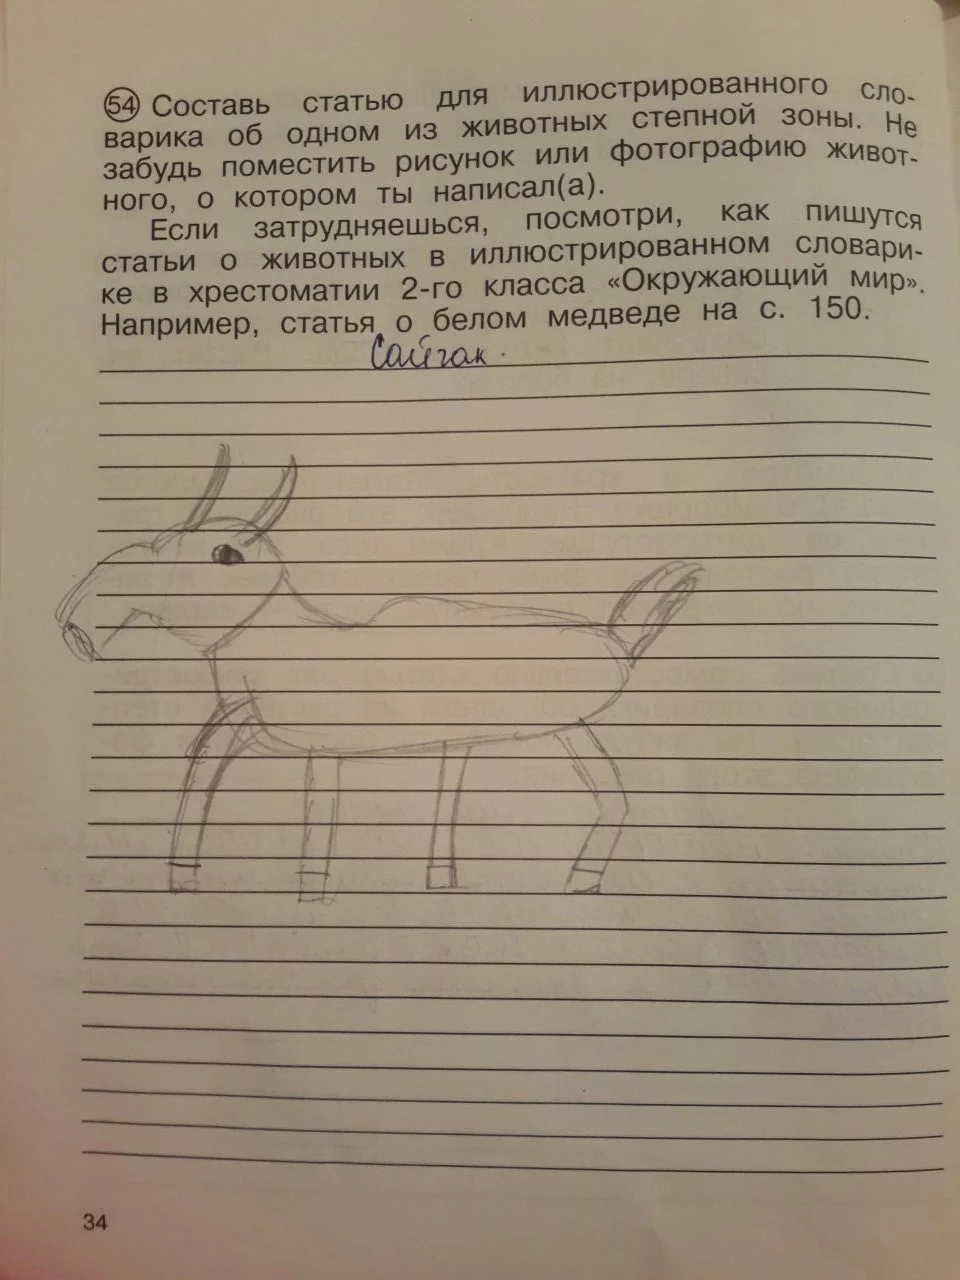 54 Составь статью для иллюстрированного сло-
варика об одном из животных степной зоны. Не
забудь поместить рисунок или фотографию живот-
ного, о котором ты написал(а).
Если затрудняешься, посмотри, как пишутся
статьи о животных в иллюстрированном словари-
ке в хрестоматии 2-го класса «Окружающий мир».
Например, статья о белом медведе на с. 150.
Сайгак.
34